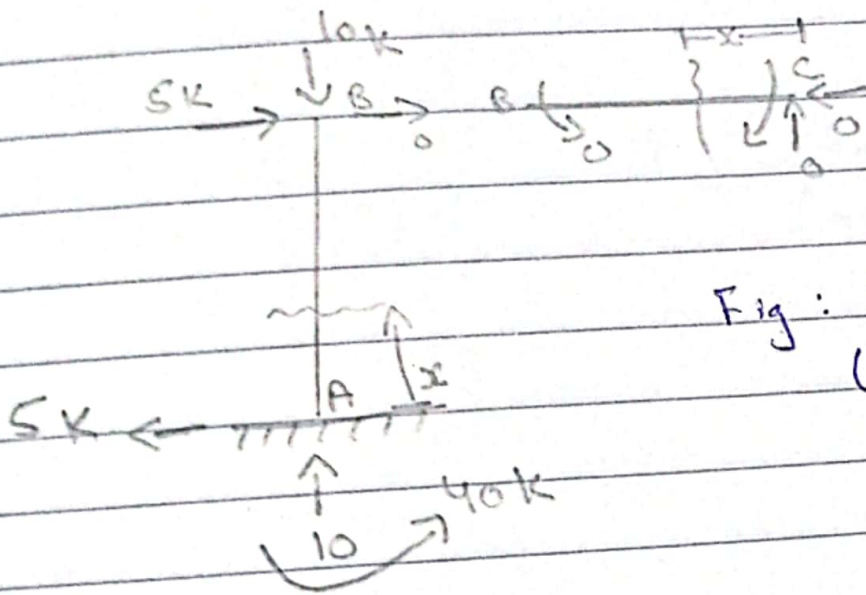 10k
x
5K B B C
0 0 0
0
Fig :
(
A x
5K
10 40k